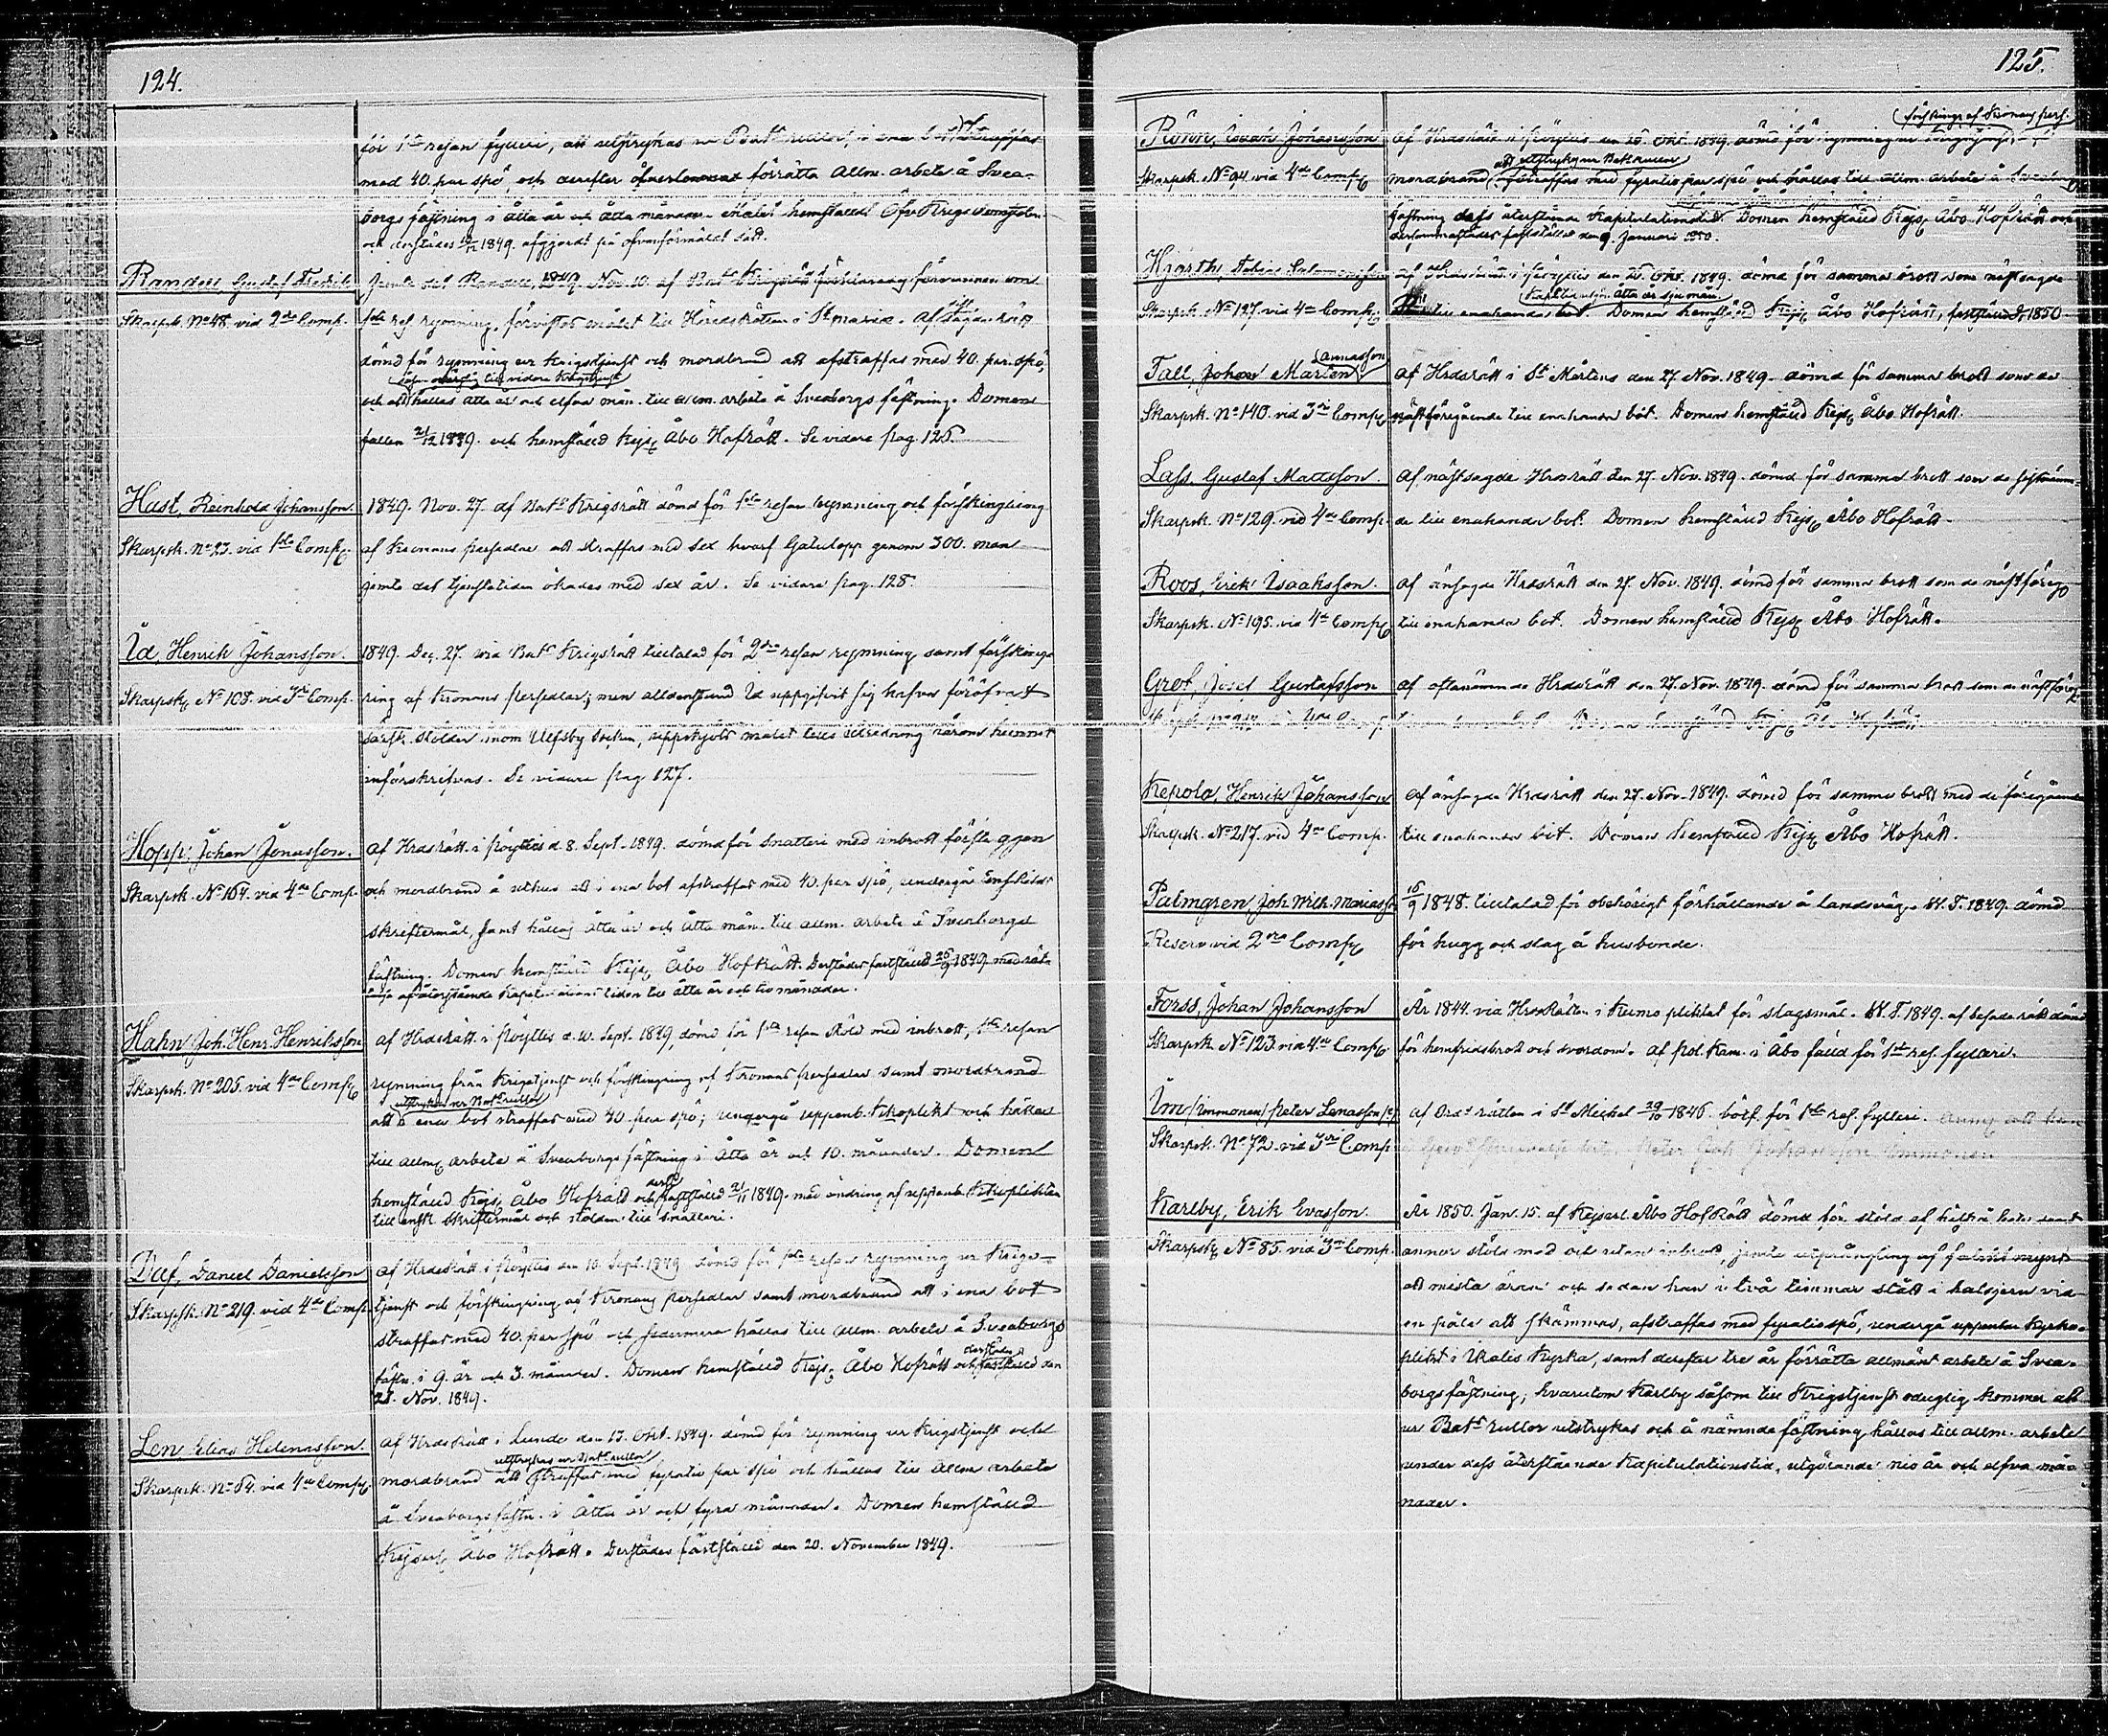 124.
för 1sta resan fylleri, att utstrykas ur Batns rullor, i ena bot afstraffas
med 40. par spö, och derefter förrätta allm. arbete å Svea-
borgs fästning i åtta år och åtta månader. Målet hemstäldt Öfv. Krigs Domstolen
och derstädes 1849. afgjordt på ofvanförmäldt sätt.
Randell, Gustaf Fredrik
Skarpsk. No 48 vid 2dra Comp.
Jemte det Randell, 1849. Nov. 10. af Batns Krigsrätt förvunnen om
1sta res. rymning, förvistes målet till Häradsrätten i St. Marie. Af sistsagda rätt
dömd för rymning ur krigstjenst och mordbrand att afstraffas med 40. par spö,
såsom oduglig till vidare Krigstjenst
och att hållas åtta år och elfva mån. till allm. arbete å Sveaborgs fästning. Domen
fallen 21/12 1849. och hemställd Kejs. Åbo Hofrätt. Se vidare pag. 126.
Hast, Reinhold Johansson
Skarpsk. No 23. vid 1sta Comp.
1849. Nov. 27. af Batns Krigsrätt dömd för 1sta resan rymning och förskingring
af Kronans persedlar att straffas med sex hvarf Gatulopp genom 300. man
jemte det tjenstetiden ökades med sex år. Se vidare pag. 128.
Id, Henrik Johansson.
Skarpsk. No 108. vid 3dje Comp.
1849. Dec. 27. vid Batns Krigsrätt tilltalad för 2dra resan rymning samt försking-
ring af Kronans persedlar; men alldenstund Id uppgifvit sig hafva föröfvat
särsk. stölder inom Ulfsby Socken, uppskjöts målet tills utredning härom hunnit
införskrifvas. Se vidare pag. 127.
Hopp, Johan Jonasson.
Skarpsk. No 164. vid 4de Comp.
af Hrdsrätt i Pöyttis d. 8. Sept. 1849. dömd för snatteri med inbrott första ggen
och mordbrand å uthus att i ena bot afstraffas med 40. par spö, undergå enskildt
skriftermål, samt hållas åtta år och åtta mån. till allm. arbete å Sveaborgs
fästning. Domen hemställd Kejs. Åbo Hofrätt. Derstädes fastställd 1849 med rät-
telse af återstående Kapitulations tiden till åtta år och tio månader.
Hahn Joh. Henr. Henriksson
Skarpsk. No 205. vid 4de Comp.
af Hrdsrätt i Pöyttis d. 10. Sept. 1849, dömd för 1sta resan stöld med inbrott, 1sta resan
rymning från Krigstjenst och förskingring af Kronans persedlar samt mordbrand
utstrykas ur Batns rullor
att i ena bot straffas med 40. par spö; undergå uppenb. Kyrkoplikt och hållas
till allm. arbete å Sveaborgs fästning i åtta år och 10. månader. Domen
hemställd Kejs. Åbo Hofrätt och derst. fastställd 21/11 1849. med ändring af uppenb. Kyrkoplikten
till ensk. skriftermål och stölden till snatteri.
Daf, Daniel Danielsson
Skarpsk. No 219. vid 4de Comp.
af Hrdsrätt i Pöyttis den 10. Sept. 1849 dömd för 1sta resan rymning ur Krigs-
tjenst och förskingring af Kronans persedlar samt mordbrand att i ena bot
straffas med 40. par spö och sedermera hållas till allm. arbete å Sveaborgs
fästn. i 9. år och 3. månader. Domen hemställd Kejs. Åbo Hofrätt och derstädes fastställd den
21. Nov. 1849.
Len Elias Helenasson.
Skarpsk. No 64. vid 4de Comp.
af Hrdsrätt i Lundo den 13. Okt. 1849. dömd för rymning ur Krigstjenst och
utstrykas ur Batns rullor
mordbrand att straffas med fyratio par spö och hållas till allm. arbete
å Sveaborgs fästn. i åtta år och fyra månader. Domen hemställd
Kejserl. Åbo Hofrätt. Derstädes fastställd den 20. November 1849.
125.
Rönn, Isaak Johansson
Skarpsk. No 94. vid 4de Comp.
förskingr. af Kronans pers.
af Hrdsrätt i Pöyttis den 25. Okt. 1849. dömd för rymning ur krigstjenst,
att utstrykas ur Batns rullor
mordbrand straffas med fyratio par spö och hållas till allm. arbete å Sveaborgs
fästning dess återstående Kapitulationstid. Domen hemställd Kejs. Åbo Hofrätt och
dersammastädes fastställd den 9. Januari 1850.
Hjorth Tobias Salomonsson
Skarpsk. No 127. vid 4de Comp.
af Hrdsrätt i Pöyttis den 25. Okt. 1849. dömd för samma brott som nästsagde
Kapitul. utgör. åtta år sju mån.
till enahanda bot. Domen hemställd Kejs. Åbo Hofrätt, fastställd 1850
Fall, Johan Mårten Annasson
Skarpsk. No 140. vid 3dje Comp.
af Hrdsrätt i St. Mårtens den 27. Nov. 1849. dömd för samma brott som de
nästföregående till enahanda bot. Domen hemställd Kejs. Åbo Hofrätt.
Lass, Gustaf Mattsson.
Skarpsk. No 129. vid 4de Comp.
af nästsagde Hrdsrätt den 27. Nov. 1849. dömd för samma brott som de sistnämn-
de till enahanda bot. Domen hemställd Kejs. Åbo Hofrätt.
Roos, Erik Isaaksson.
Skarpsk. No 195. vid 4de Comp.
af änsagde Hrdsrätt den 27. Nov. 1849. dömd för samma brott som de nästföreg.
till enahanda bot. Domen hemställd Kejs. Åbo Hofrätt.
Gref, Josef Gustafsson
af oftanämnde Hrdsrätt den 27. Nov. 1849. dömd för samma brott som de nästföreg.
Domen hemställd Kejs. Åbo Hofrätt.
Kepola, Henrik Johansson
Skarpsk. No 217. vid 4de Comp.
af änsagde Hrdsrätt den 27. Nov. 1849. dömd för samma brott med de föregående
till enahanda bot. Domen hemställd Kejs. Åbo Hofrätt.
Palmgren, Joh. Wilh. Mariasson
Reserv vid 2dra Comp.
1848. tilltalad för obehörigt förhållande å landsväg. W.T. 1849. dömd
för hugg och slag å husbonde.
Forss, Johan Johansson
Skarpsk. No 123. vid 4de Comp.
År 1844. vid Hrdsrätten i Kumo pliktat för slagsmål. W.T. 1849. af berörde rätt dömd
för hemfridsbrott och svordom. af Pol. Kam. i Åbo fälld för 1sta res. fylleri.
Im /Immonen/ Peter Lenasson
Skarpsk. No 72. vid 3dje Comp.
af Ordsrätten i St Michel 29/10 1846. bötf. för 1sta res. fylleri. att han
Peter Joh. Johansson Immonen
Karlby, Erik Evasson.
Skarpsk. No 85. vid 3dje Comp.
År 1850. Jan. 15. af Kejserl. Åbo Hofrätt dömd för stöld af häst å bete samt
annan stöld med och utan inbrott, jemte utprångling af falskt mynt
att mista äran och sedan han i två timmar stått i halsjern vid
en påle att skämmas, afstraffas med fyratio spö, undergå uppenbar kyrko-
plikt i Ikalis Kyrka, samt derefter tre år förrätta allmänt arbete å Svea-
borgs fästning; hvarutom Karlby såsom till Krigstjenst oduglig kommer att
ur Batns rullor utstrykas och å nämnde fästning hållas till allm. arbete
under dess återstående Kapitulationstid, utgörande nio år och elfva må-
nader.